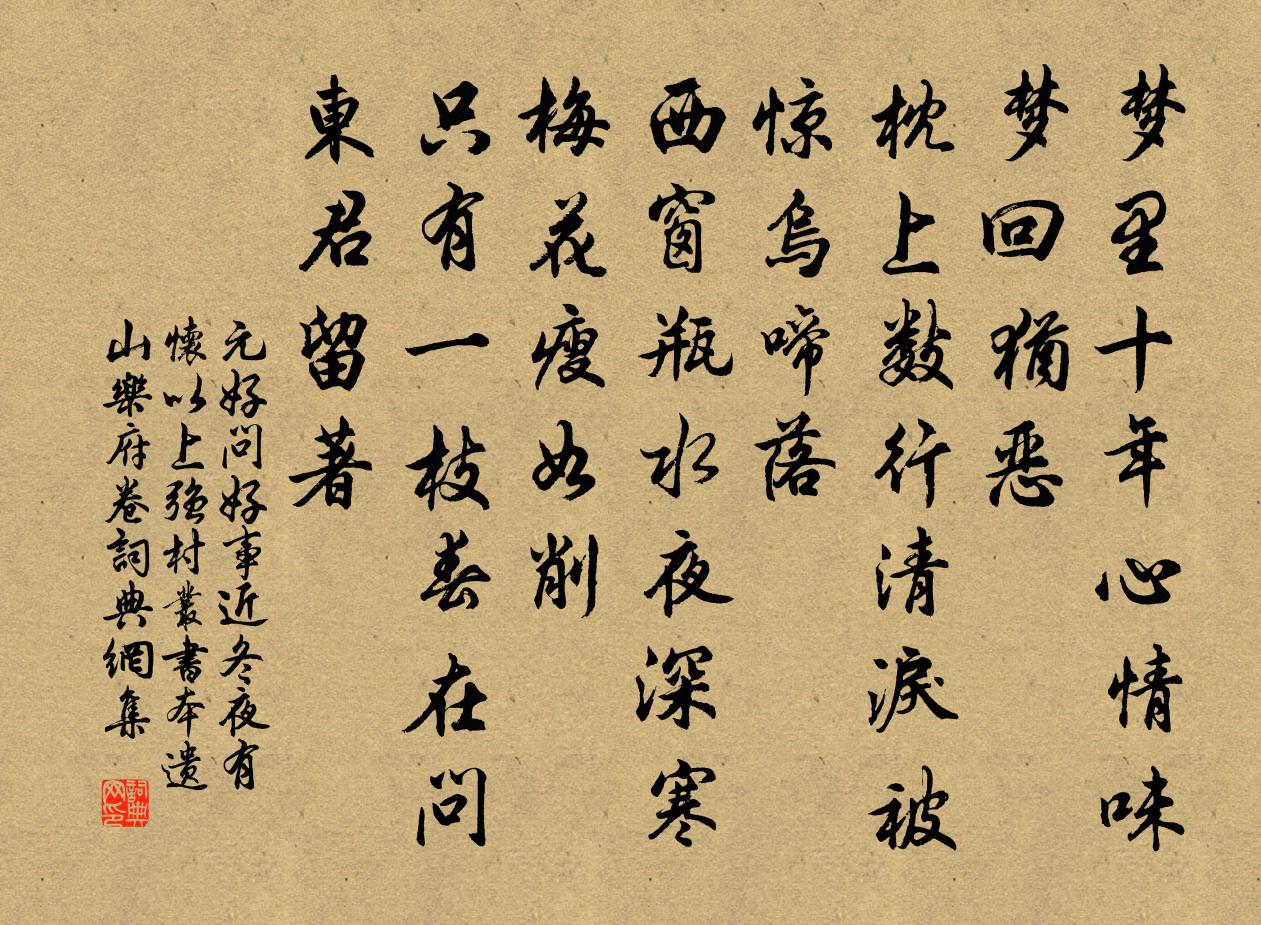 梦里十年心情味
梦回猶恶
枕上数行清淚被
惊烏啼落
西窗瓶水夜深寒
梅花瘦如削
只有一枝春在問
東君留著
元好問好事近冬夜有
懷以上強村叢書本遗
山樂府卷詞典網集
詞典
网印